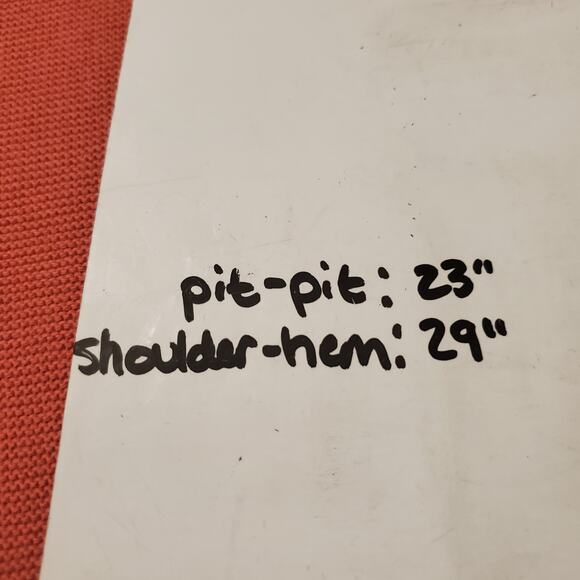 pit-pit: 23"
shoulder-hem: 29"